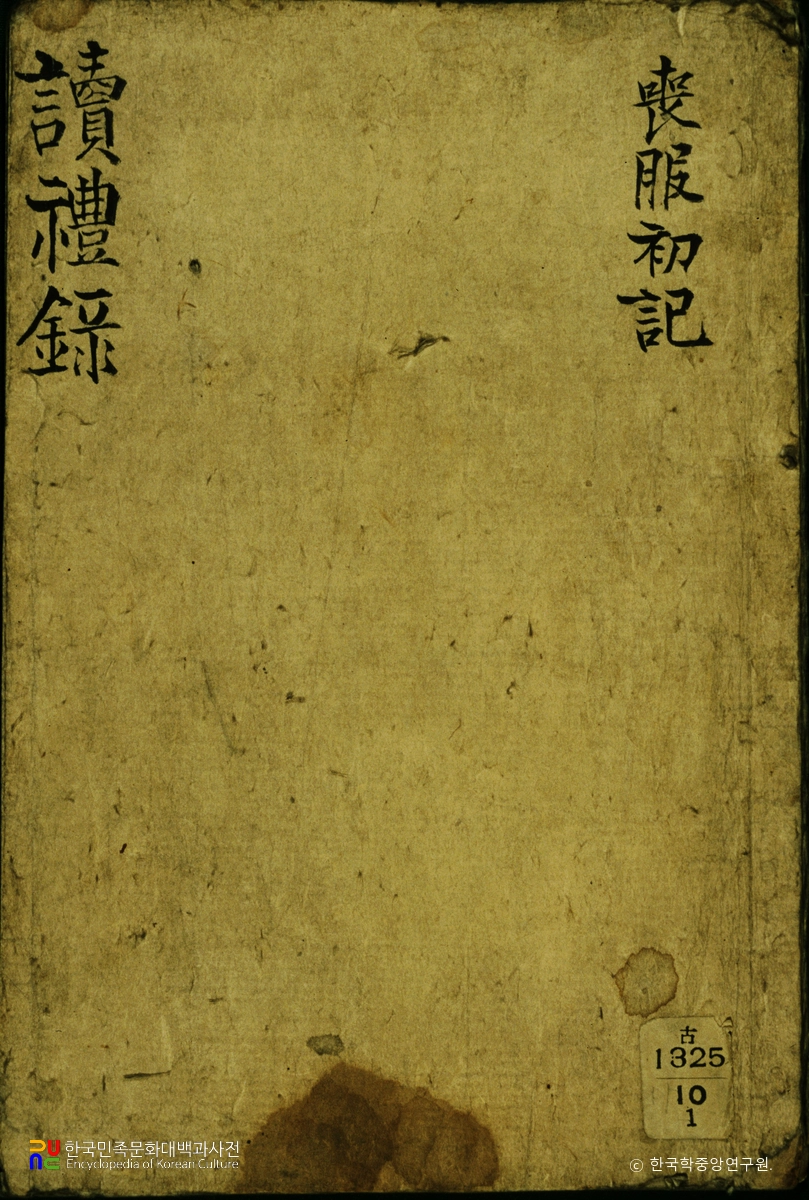 喪服初記
讀禮錄
古
1325
10
1
한국민족문화대백과사전
Encyclopedia of Korean Culture
© 한국학중앙연구원.